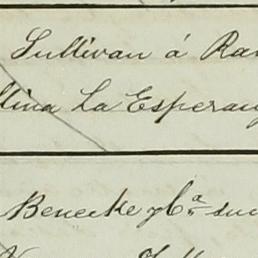 Sullivan á Ra
llina La Esperan
Benecke y Cª suc